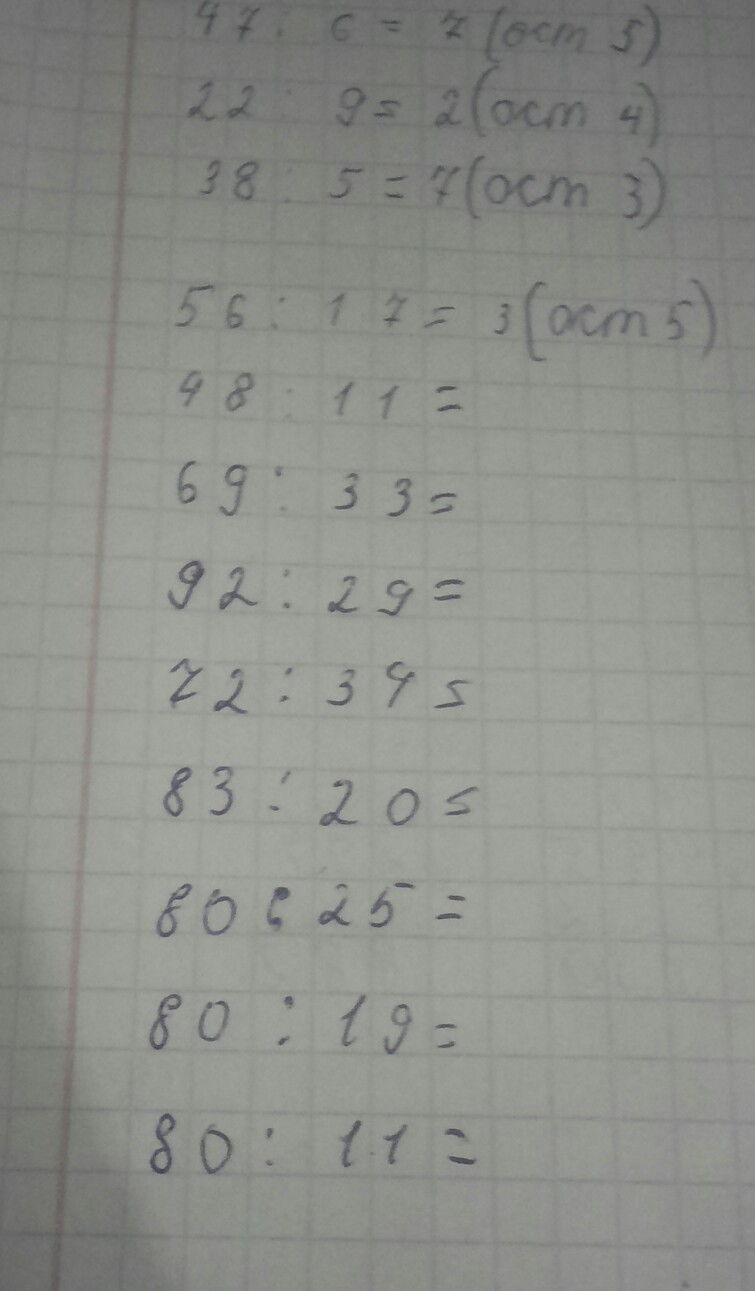 47 : 6 = 7 (ост 5)
22 : 9 = 2 (ост 4)
38 : 5 = 7 (ост 3)
56 : 17 = 3 (ост 5)
48 : 11 =
69 : 33 =
92 : 29 =
72 : 34 =
83 : 20 =
80 : 25 =
80 : 19 =
80 : 11 =